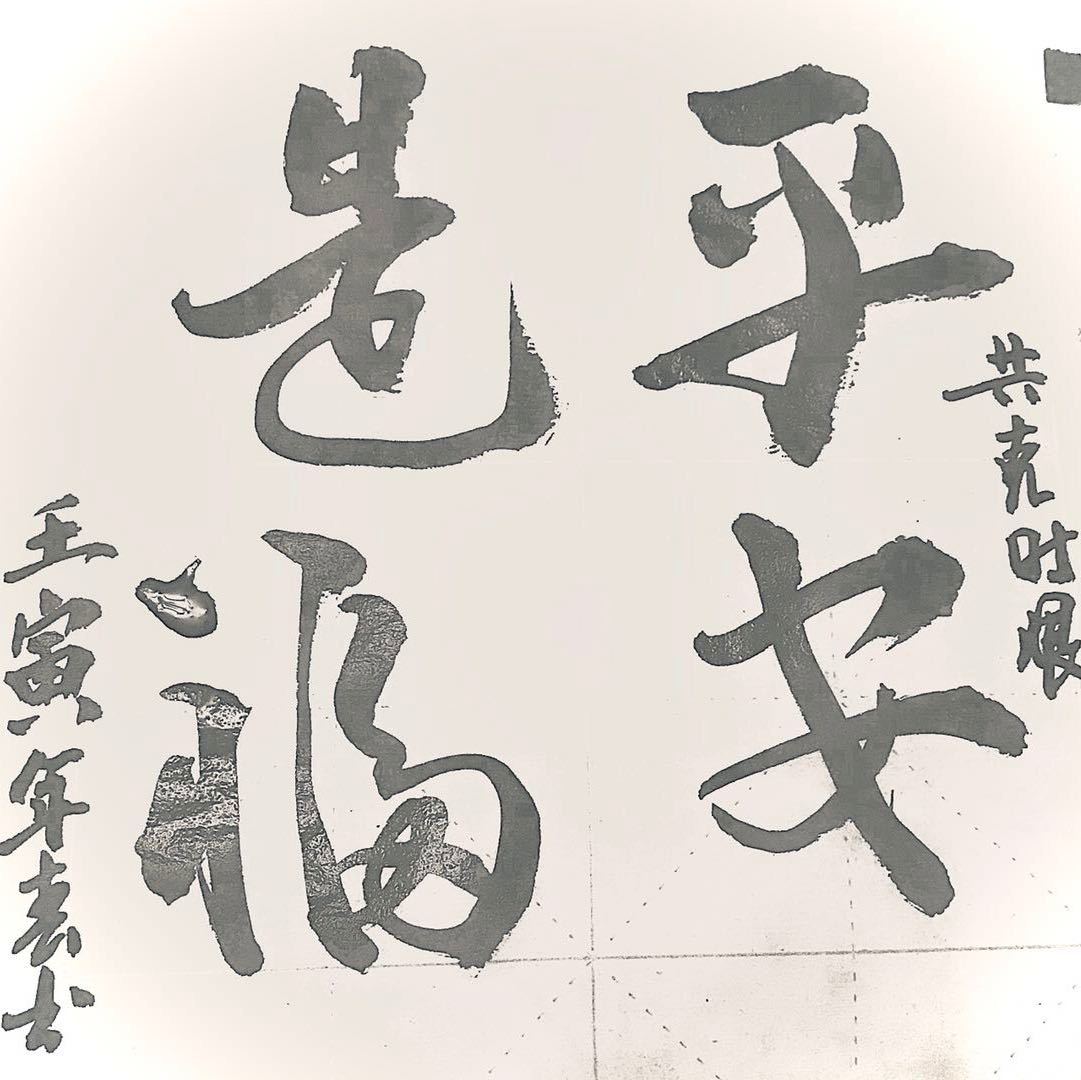 共克时艰
平安
是福
壬寅年书